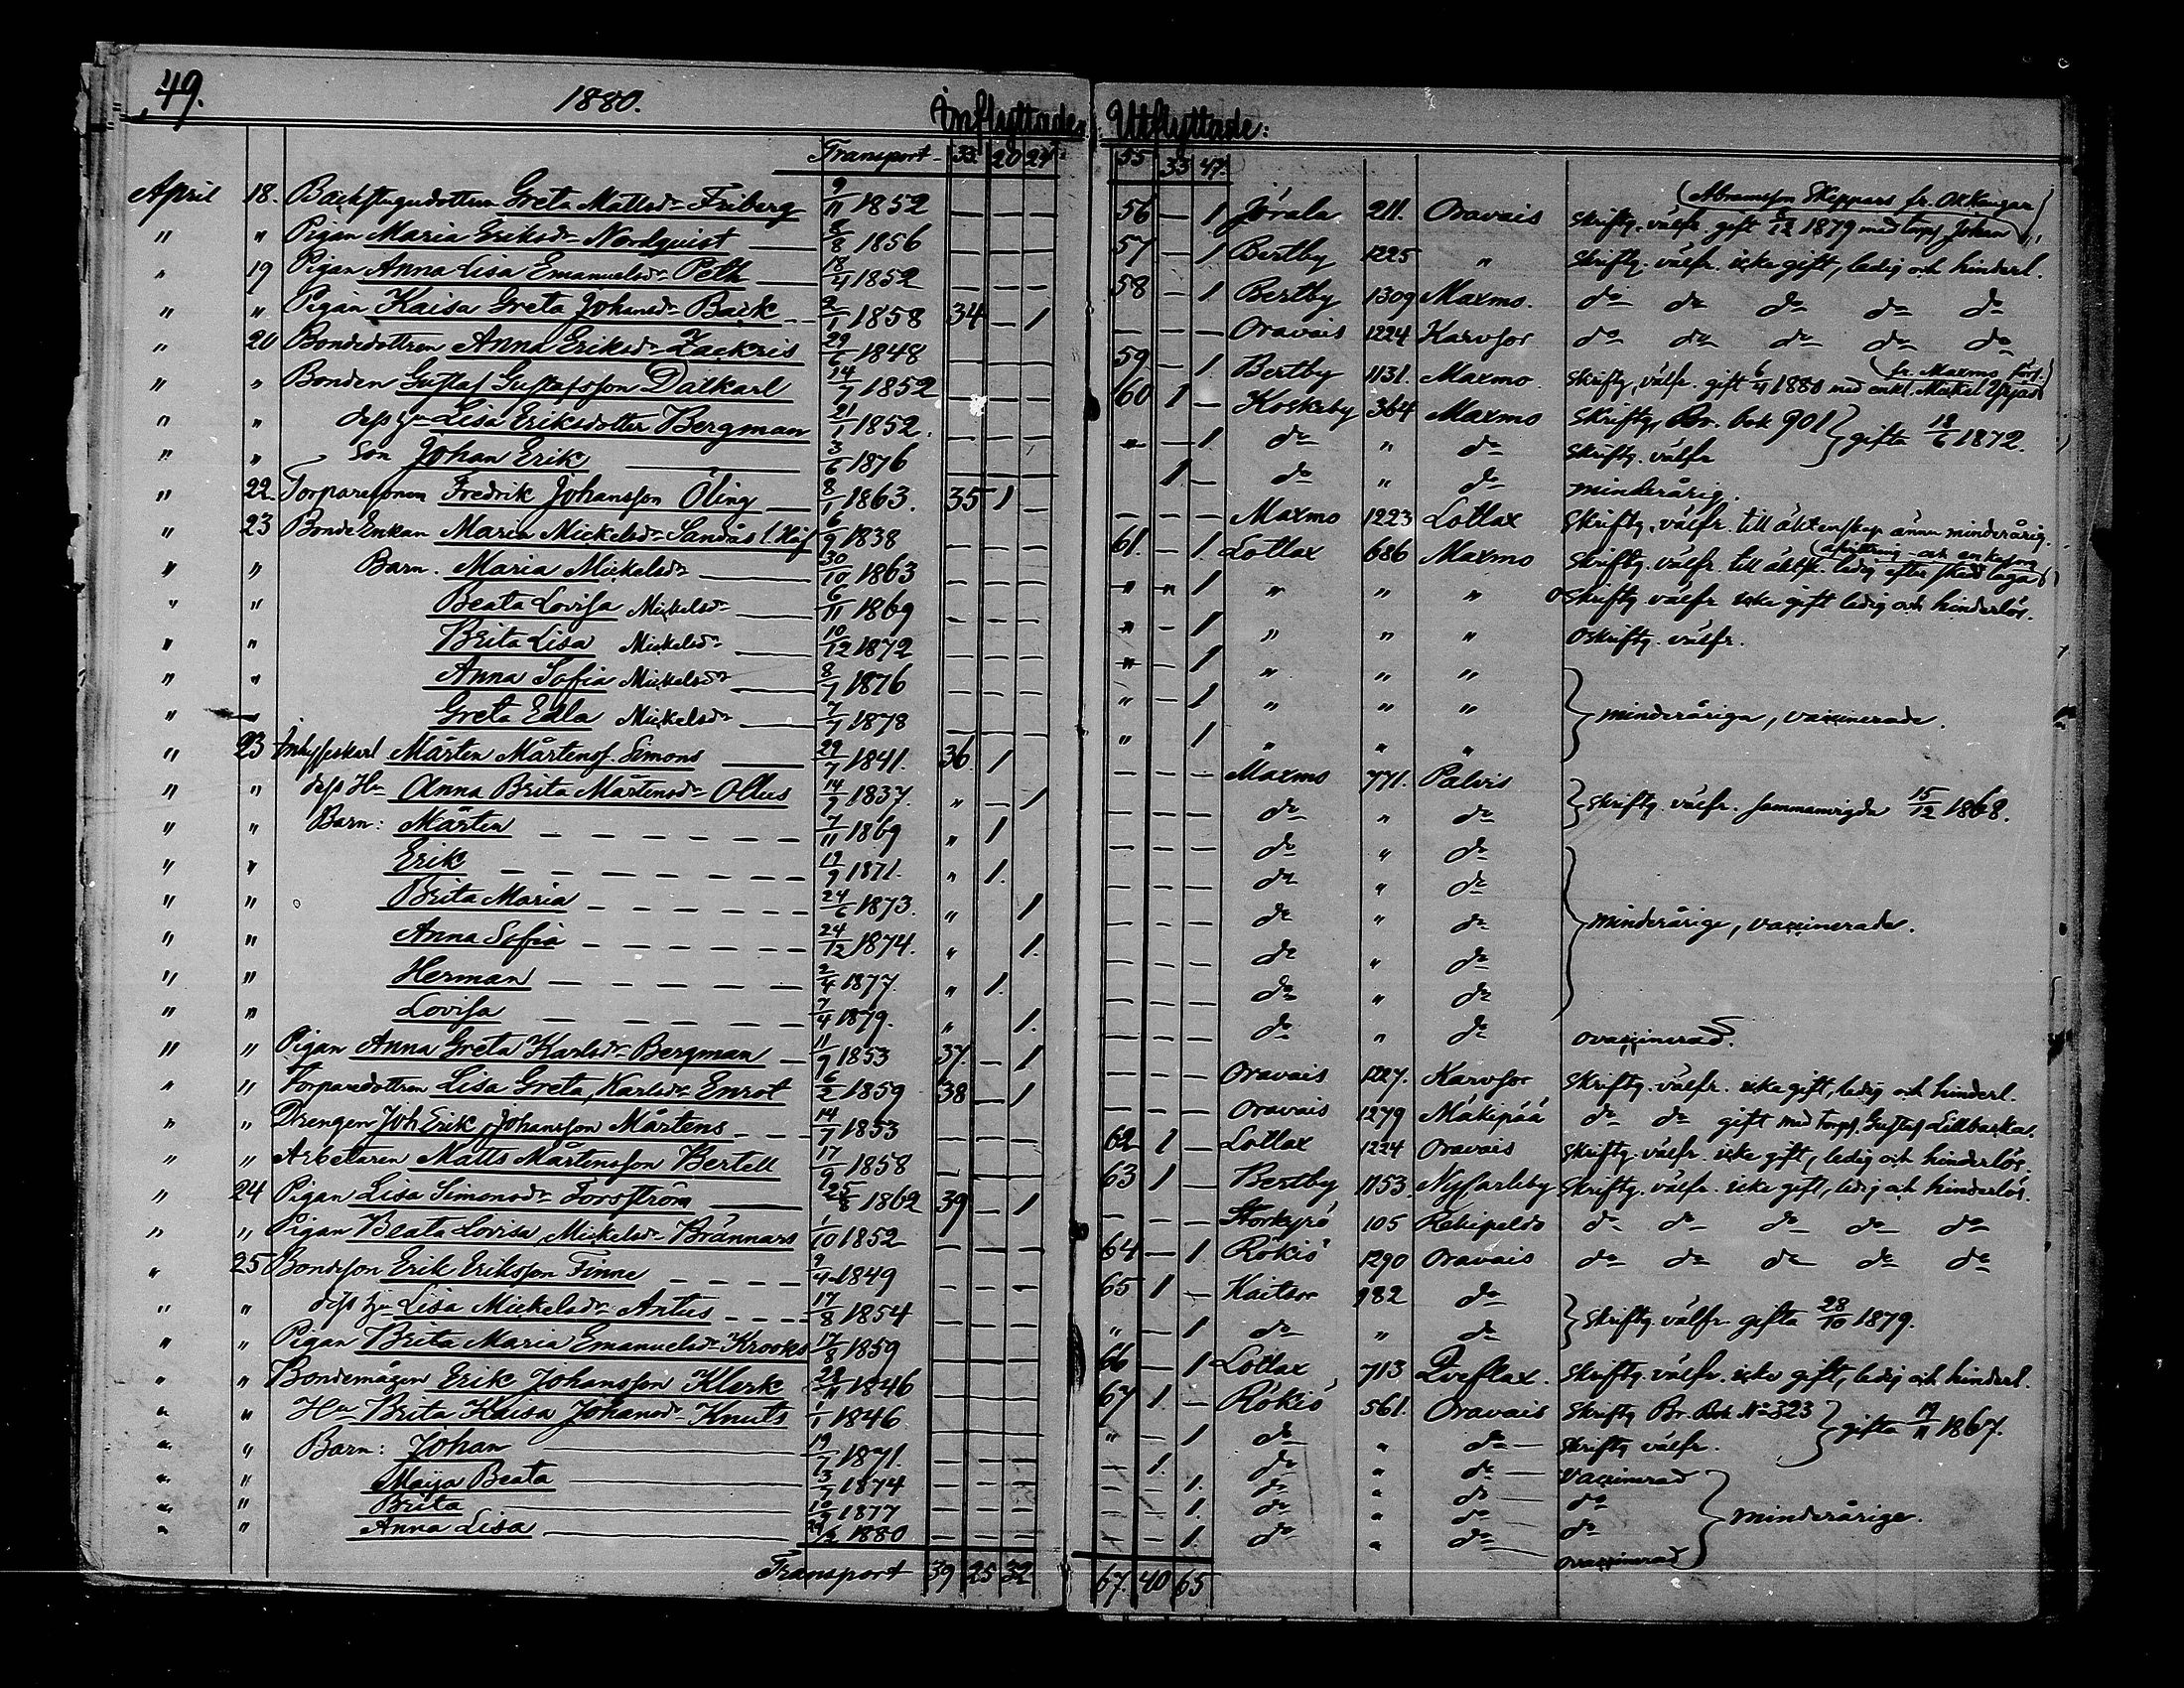 49. 1880. Inflyttade: Utflyttade:
Transport 33 20 24 55 33 47
April 18. Backstugudottren Greta Mattsdr Friberg 9/11 1852 — — — 56 — 1 Jörala 211. Oravais Skriftg. välfr. gift 5/12 1879 med torp. Johan (Abramsson Skeppars fr. Okkangar)
" " Pigan Maria Eriksdr Nordquist 8/8 1856 — — — 57 — 1 Bertby 1225 " Skriftg. välfr. icke gift, ledig och hinderl.
" 19 Pigan Anna Lisa Emanuelsdr Peth 18/4 1852 — — — 58 — 1 Bertby 1309 Maxmo. do do do do do
" " Pigan Kaisa Greta Johansdr Back 2/1 1858 34 — 1 — — — Oravais 1224 Karvsor do do do do do
" 20 Bondedottren Anna Eriksdr Zackris 29/6 1848 — — — 59 — 1 Bertby 1131. Maxmo. Skriftg, välfr. gift 6/4 1880 med enkl. Mickel (fr. Maxmo
" " Bonden Gustaf Gustafsson Dalkarl 14/7 1852 — — — 60 1 — Koskeby 364 Maxmo Skriftg, Br. bok 901 } gifta 18/6 1872.
" " dess hu Lisa Eriksdotter Bergman 21/1 1852. — — — " — 1 do " do Skriftg. välfr
" " Son Johan Erik 3/6 1876 — — — 1 — do " do minderårig.
" 22. Torparesonen Fredrik Johansson Öling 8/1 1863. 35 1 — — — — Maxmo 1223 Lotlax Skriftg. välfr. till äktenskap ännu minderårig.
" 23 BondeEnkan Maria Mickelsdr Sandås 6/9 1838 — — — 61. — 1 Lotlax 686 Maxmo Skriftg. välfr. till äktsk. ledig efter skedd laga (afvittring och
" " Barn. Maria Mickelsdr 30/10 1863 — — — " " 1 " " " oskriftg välfr icke gift ledig och hinderlös.
" " Beata Lovisa Mickelsdr 6/11 1869 — — — " — 1 " " " Oskriftg. välfr.
" " Brita Lisa Mickelsdr 10/12 1872 — — — " — 1 " " "
" " Anna Sofia Mickelsdr 8/7 1876 — — — " — 1 " " " } minderåriga, vaccinerade.
" — Greta Edla Mickelsdr 7/7 1878 — — — " 1 " " "
" 23 Inhysekarl Mårten Mårtenss. Simons 29/7 1841. 36. 1 — — — Maxmo 771. Palvis } Skriftg. välfr. sammanvigda 15/12 1868.
" " dess Hu Anna Brita Mårtensdr Ollus 14/9 1837. " — 1 — — — do " do
" " Barn: Mårten 7/11 1869 " 1 — — — do " do
" " Erik 19/9 1871. " 1. — — — do " do
" " Brita Maria 24/6 1873. " 1 — — — do " do } minderårige, vaccinerade.
" " Anna Sofia 24/12 1874. " 1. — — — do " do
" " Herman 2/4 1877. " 1. — — — do " do
" " Lovisa 7/4 1879. " 1. — — — do " do ovaccinerad.
" " Pigan Anna Greta Karlsdr Bergman 11/9 1853 37. — 1 — — — Oravais 1227. Karvsor Skriftg. välfr. icke gift, ledig och hinderl.
" " Torparedottren Lisa Greta Karlsdr Enrot 6/2 1859 38 — 1 — — — Oravais 1279 Mäkipää do do gift med torps. Gustaf Lillbacka.
" " Drengen Joh Erik Johansson Mårtens 14/7 1853 — — — 62 1 — Lotlax 1224 Oravais Skriftg. välfr. icke gift, ledig och hinderlös.
" " Arbetaren Matts Mårtensson Bertell 17/9 1858 — — — 63 1 — Bertby 1153 Nykarleby Skriftg. välfr. icke gift, ledig och hinderlös.
" 24 Pigan Lisa Simonsdr Forsström 25/8 1862 39 — 1 — — — Storkyrö 105 Rekipeldo do do do do do
" " Pigan Beata Lovisa Mickelsdr Brännars 1/10 1852 — — — 64 — 1 Rökiö 1290 Oravais do do do do do
" 25 Bondeson Erik Eriksson Finne 9/4 1849 — — — 65 1 — Kaitsor 982 do } Skriftg. välfr. gifta 28/10 1879.
" " dess hu Lisa Mickelsdr Antus 17/8 1854 — — — " — 1 do " do
" " Pigan Brita Maria Emanuelsdr Krooks 17/8 1859 — — — 66 — 1 Lotlax 713 Qveflax. Skriftg. välfr. icke gift, ledig och hinderl.
" " Bondemågen Erik Johansson Klerk 28/11 1846 — — — 67 1. — Rökiö 561. Oravais Skriftg Br. Bok No 323 } gifta 19/11 1867.
" " Hu Brita Kaisa Johansdr Knuts 1/1 1846 — — — " — 1 do " do Skriftg välfr.
" " Barn: Johan 19/7 1871. — — — — 1. do " do Vaccinerad
" " Maija Beata 3/7 1874 — — — — — 1. do " do do } minderårige.
" " Brita 10/9 1877 — — — — — 1. do " do do
" " Anna Lisa 29/2 1880 — — — — — 1. do " do ovaccinerad
Transport 39 25 32 67. 40 65